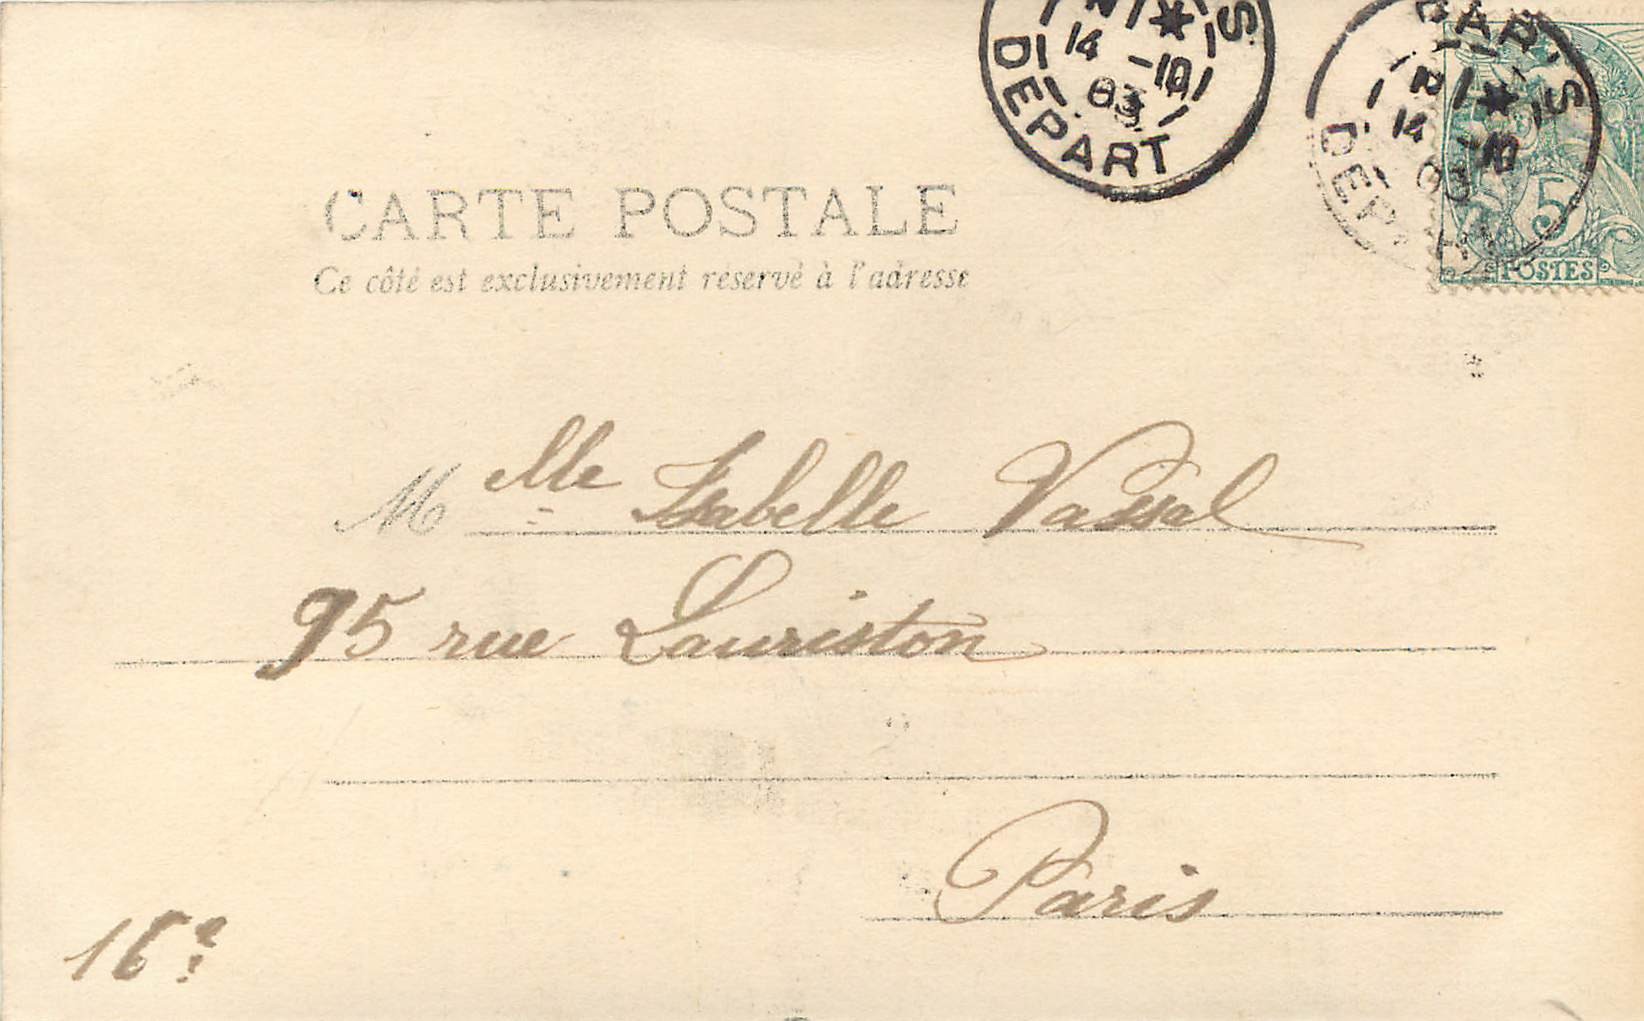 14 -10
03
DEPART
14 -10
03
5
POSTES
CARTE POSTALE
Ce côté est exclusivement réservé à l'adresse
Mlle Isabelle Vassal
95 rue Lauriston
Paris
16e